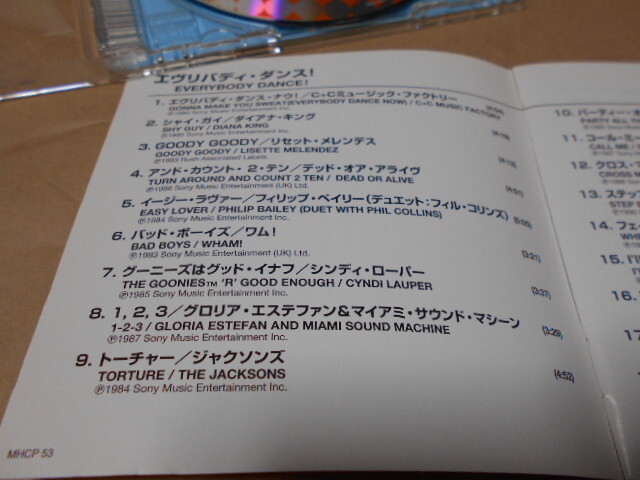 エヴリバディ・ダンス!
EVERYBODY DANCE!
1. エヴリバディ・ダンス・ナウ!/C+Cミュージック・ファクトリー
GONNA MAKE YOU SWEAT(EVERYBODY DANCE NOW) / C+C MUSIC FACTORY
℗1990 Sony Music Entertainment Inc.
2. シャイ・ガイ/ダイアナ・キング
SHY GUY / DIANA KING
℗1995 Sony Music Entertainment Inc.
(4:19)
3. GOODY GOODY/リセット・メレンデス
GOODY GOODY / LISETTE MELENDEZ
℗1993 Rush Associated Labels.
(4:13)
4. アンド・カウント・2・テン/デッド・オア・アライヴ
TURN AROUND AND COUNT 2 TEN / DEAD OR ALIVE
℗1988 Sony Music Entertainment (UK) Ltd.
(4:01)
5. イージー・ラヴァー/フィリップ・ベイリー(デュエット:フィル・コリンズ)
EASY LOVER / PHILIP BAILEY (DUET WITH PHIL COLLINS)
℗1984 Sony Music Entertainment Inc.
(5:05)
6. バッド・ボーイズ/ワム!
BAD BOYS / WHAM!
℗1983 Sony Music Entertainment (UK) Ltd.
(3:21)
7. グーニーズはグッド・イナフ/シンディ・ローパー
THE GOONIES™ 'R' GOOD ENOUGH / CYNDI LAUPER
℗1985 Sony Music Entertainment Inc.
(3:37)
8. 1, 2, 3/グロリア・エステファン&マイアミ・サウンド・マシーン
1-2-3 / GLORIA ESTEFAN AND MIAMI SOUND MACHINE
℗1987 Sony Music Entertainment Inc.
(3:29)
9. トーチャー/ジャクソンズ
TORTURE / THE JACKSONS
℗1984 Sony Music Entertainment Inc.
(4:52)
MHCP 53
10. パーティー・オ
PARTY ALL T
11. コール・ミ
CALL ME /
12. クロス・
CROSS M
13. ステッ
STEP
14. フェ
WHE
15. I'll
16.
17.